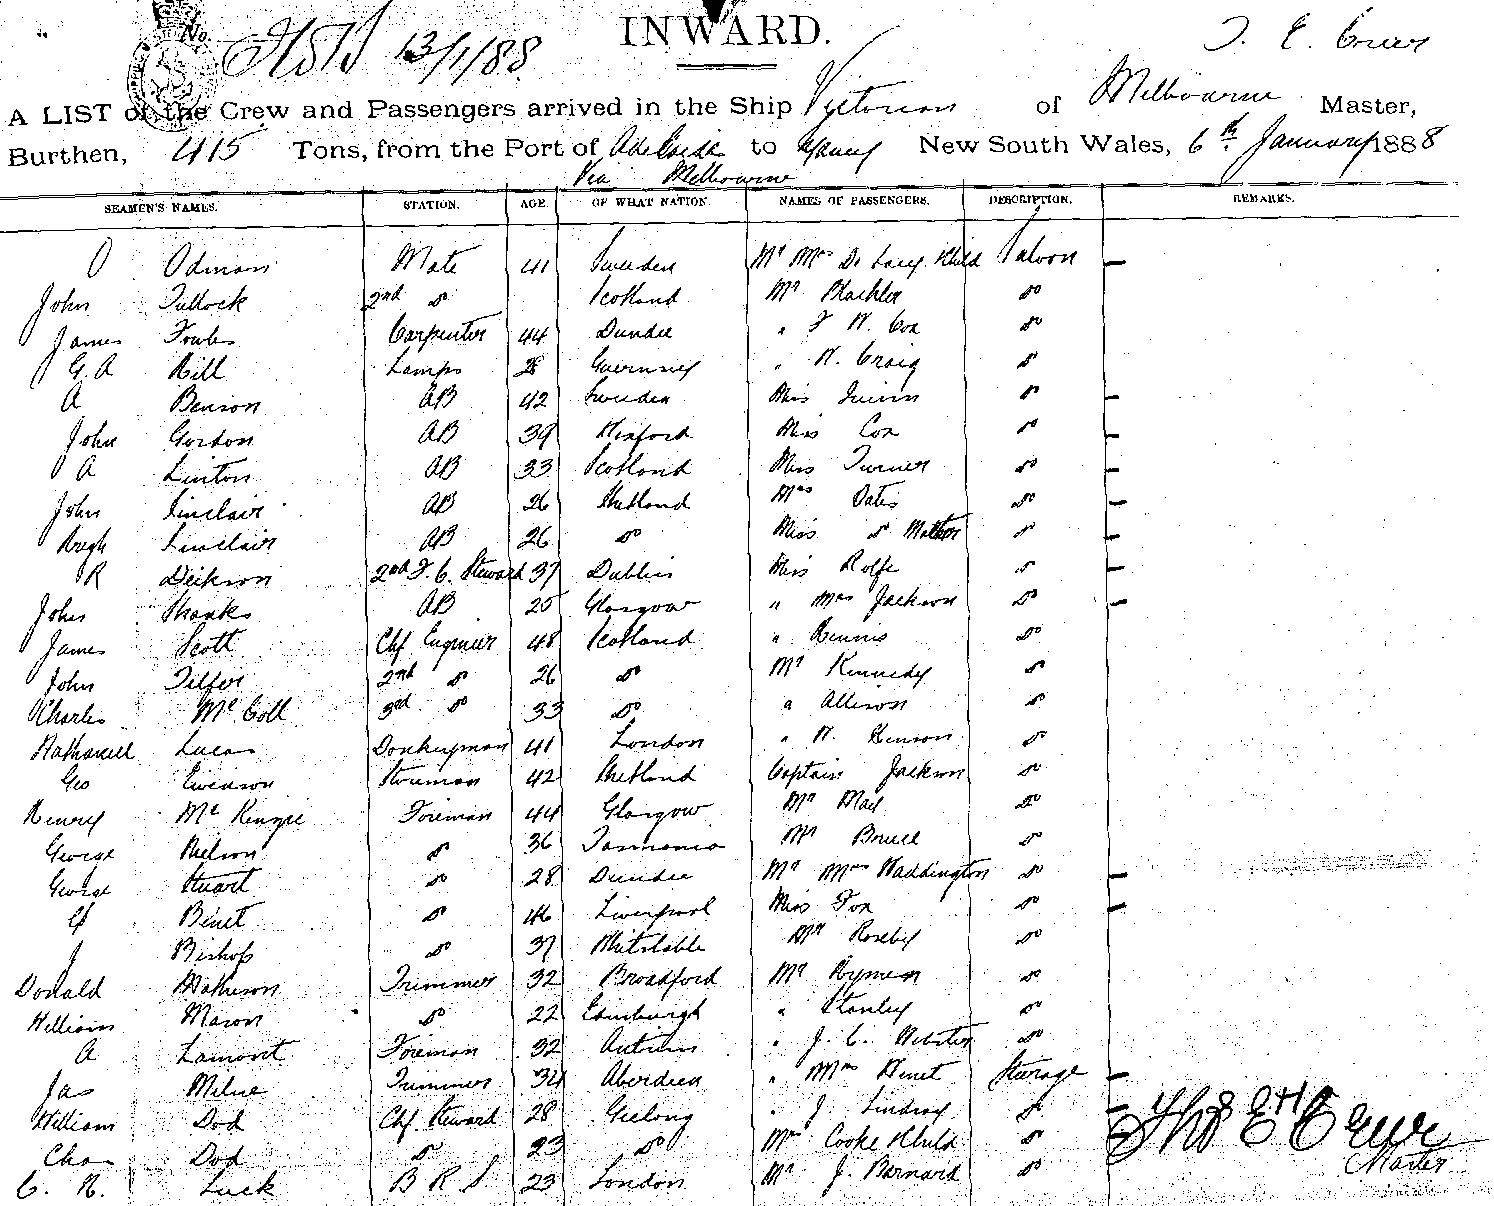 No.
13/1/88
INWARD.
A LIST of the Crew and Passengers arrived in the Ship Victorian of Melbourne Master,
Burthen, 415 Tons, from the Port of Adelaide to New South Wales, 6th January 1888
Via Melbourne
SEAMEN'S NAMES. STATION. AGE. OF WHAT NATION. NAMES OF PASSENGERS. DESCRIPTION. REMARKS.
O Odman Mate 41 Sweden Mr Mrs De Lacy Child Saloon
John Tullock 2nd do Scotland Mr do
James Carpenter 44 Dundee " F W. Cox do
G. A Hill Lamps 28 Guernsey " W. Craig do
A Benson AB 42 Sweden Miss do
John Gordon AB 39 Miss Cox do
A Linton AB 33 Scotland Miss Turner do
John Sinclair AB 26 Shetland Mrs do
Hugh Sinclair AB 26 do Miss do
R 2nd Steward 37 Dublin Miss Rolfe do
John Shanks AB 25 Glasgow " Mrs Jackson do
James Scott Chf Engineer 48 Scotland " Dennis do
John Telfer 2nd do 26 do Mr Kennedy do
Charles McColl 3rd do 33 do " Allison do
Nathaniel Lucas Donkeyman 41 London " do
Geo Storeman 42 Shetland Captain Jackson do
Henry McKenzie Fireman 44 Glasgow Mr May do
George Nelson do 36 Tasmania Mr do
George Stuart do 28 Dundee Mr Mrs Waddington do
Binet do 46 Liverpool Miss Fox do
J Bishop do 37 Whitstable Mr Roseby do
Donald Matheson Trimmer 32 Broadford Mr do
William Mason do 22 Edinburgh " Stanley do
A Lamont Fireman 32 " J. C. Webster do
Jas Milne Trimmer 34 Aberdeen " Mrs Steerage
William Dod Chf Steward 28 Geelong " J Lindsay do
Chas Dod do 23 do Mrs Cooke Child do
C. Luck B R S 23 London Mr J. Barnard do
Master